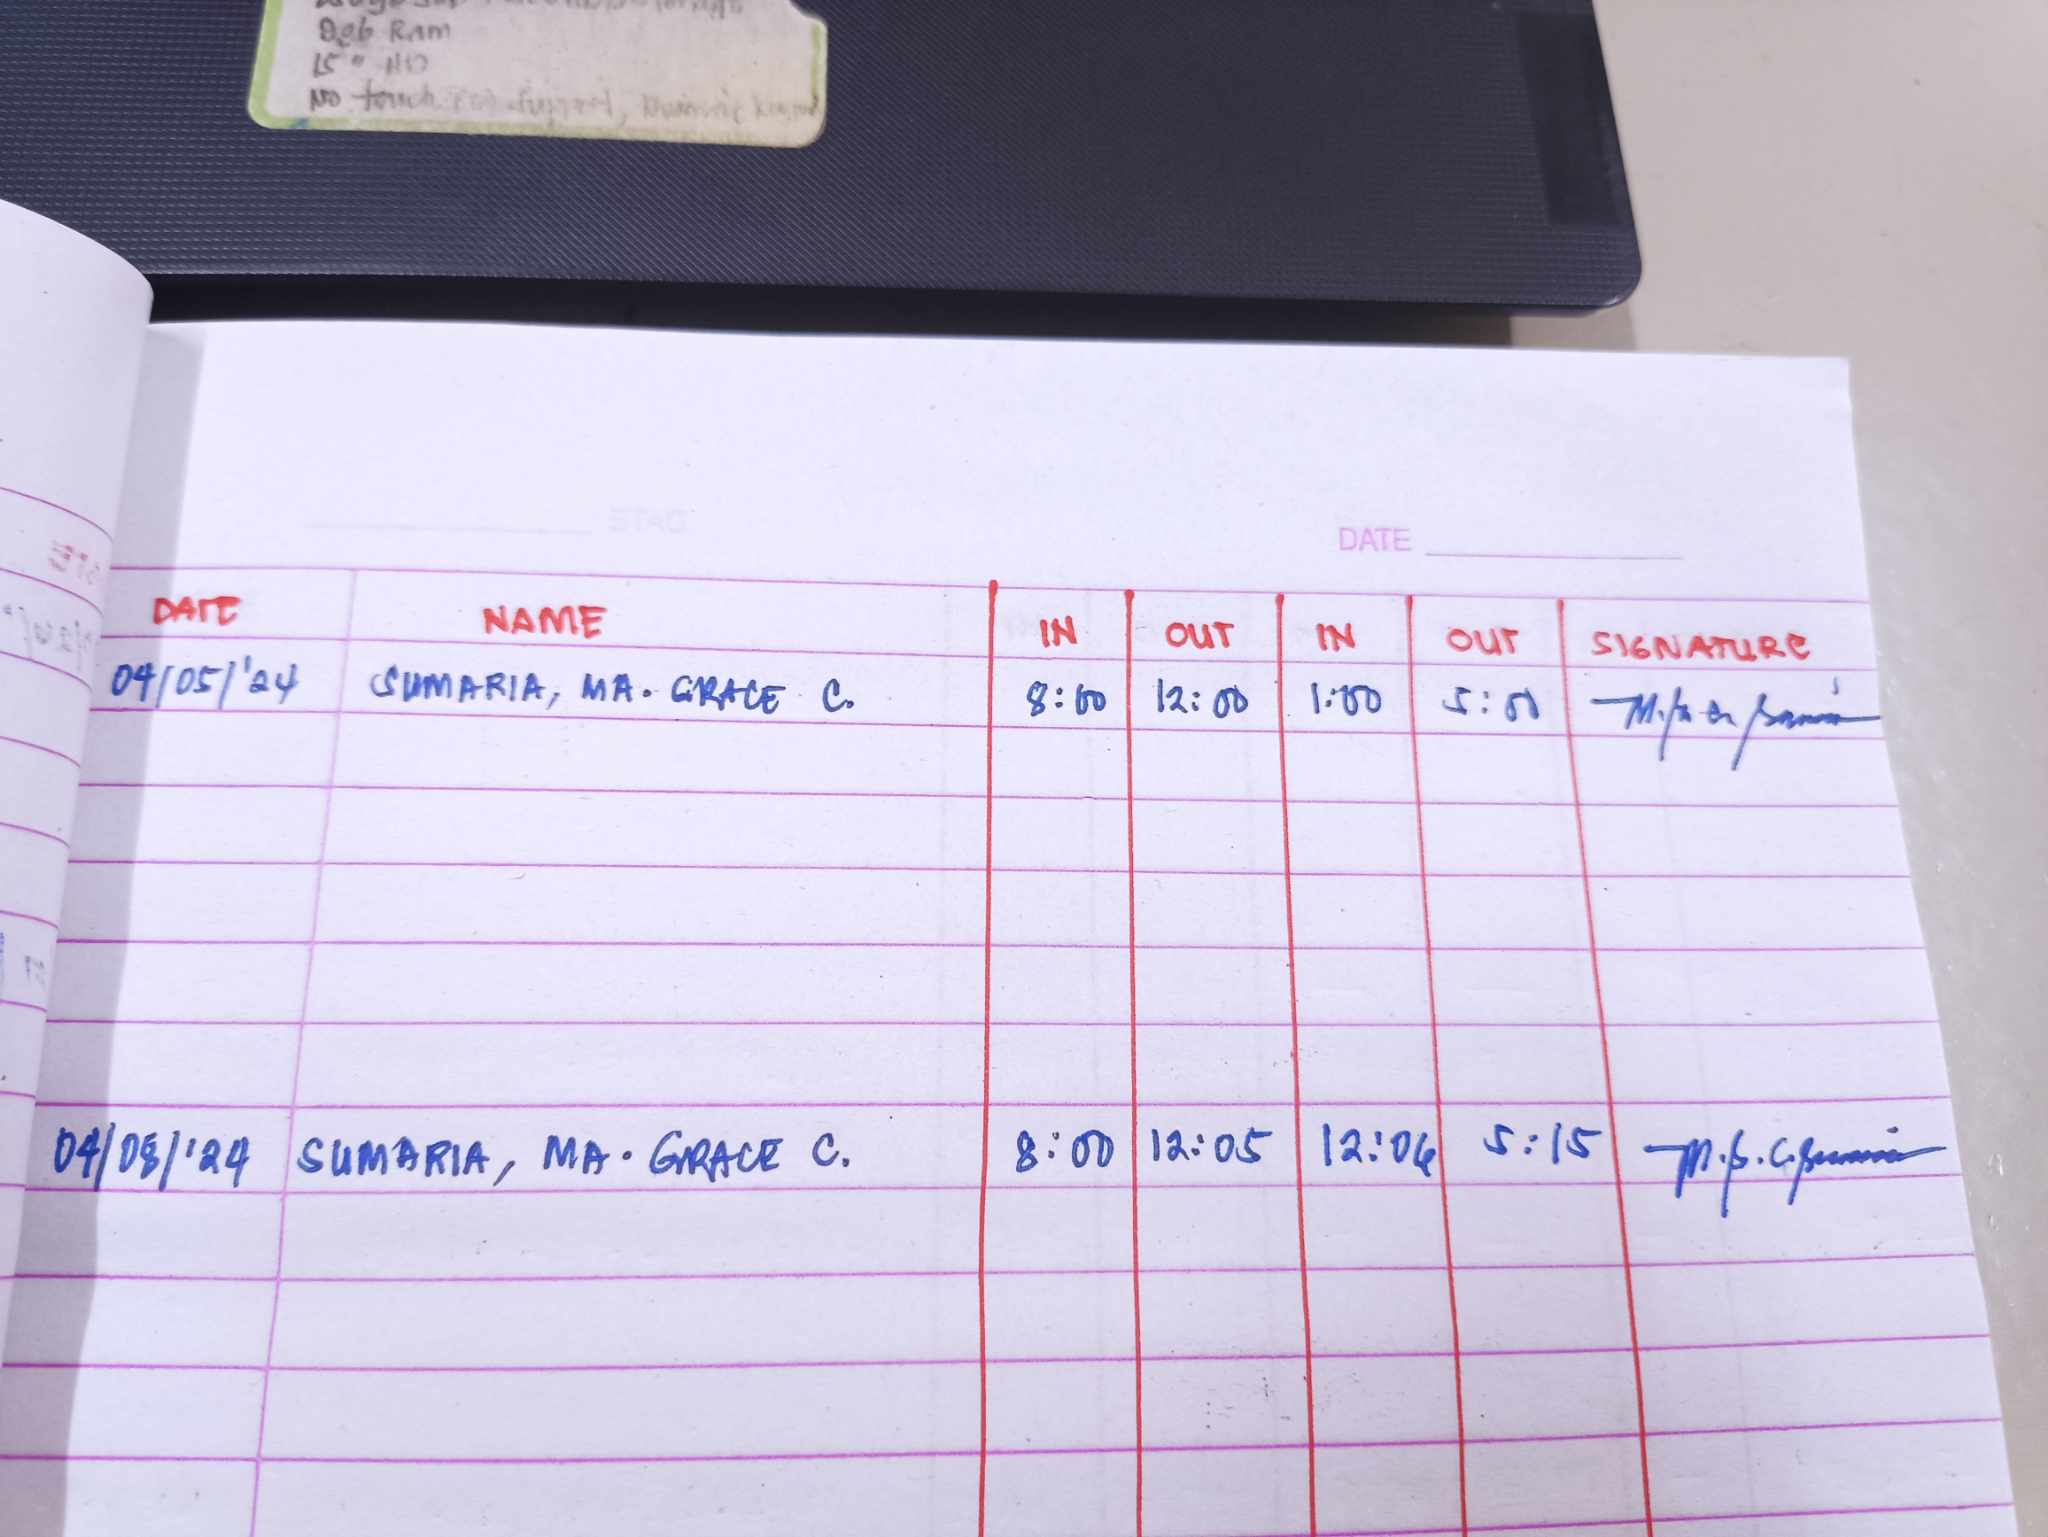 8gb Ram
15" HD
No touch
DATE
DATE NAME IN OUT IN OUT SIGNATURE
04/05/'24 SUMARIA, MA. GRACE C. 8:00 12:00 1:00 5:00
04/08/'24 SUMARIA, MA. GRACE C. 8:00 12:05 12:06 5:15